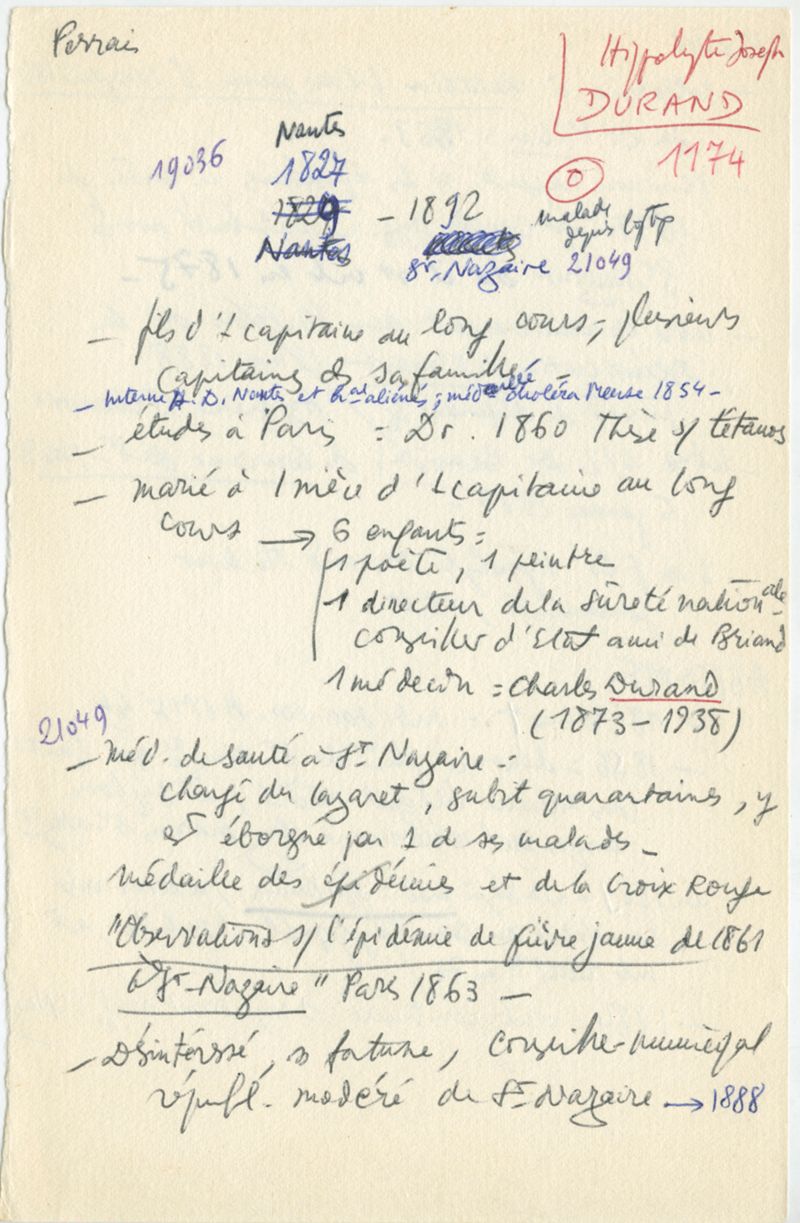 Perrais
Hippolyte Joseph
DURAND
1174
0
Nantes
19036
1827
1829 - 1892
malade
depuis lgtps
Nantes
St. Nazaire 21049
- fils d'1 capitaine au long cours, plusieurs
capitaines ds sa famille -
- interne H. D. Nantes et aliénés ; méd. choléra Meuse 1854 -
- études à Paris = Dr. 1860 Thèse s/ tétanos
- marié à 1 nièce d'1 capitaine au long
cours → 6 enfants =
1 poète, 1 peintre
1 directeur de la Sûreté nationale
conseiller d'Etat ami de Briand
1 médecin = Charles Durand
(1873-1938)
21049
- Méd. de santé à St Nazaire -
chargé du lazaret, subit quarantaines, y
est éborgné par 1 d ses malades -
médaille des épidémies et de la Croix Rouge
"Observations s/ l'épidémie de fièvre jaune de 1861
à St-Nazaire" Paris 1863 -
- Désintéressé, fortune, conseiller municipal
républ. modéré de St Nazaire → 1888